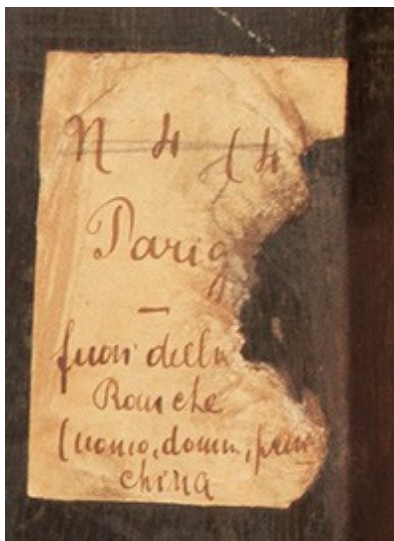 N 4 (4
Parig
—
fuori della
Ranche
(uomo, donna,
china